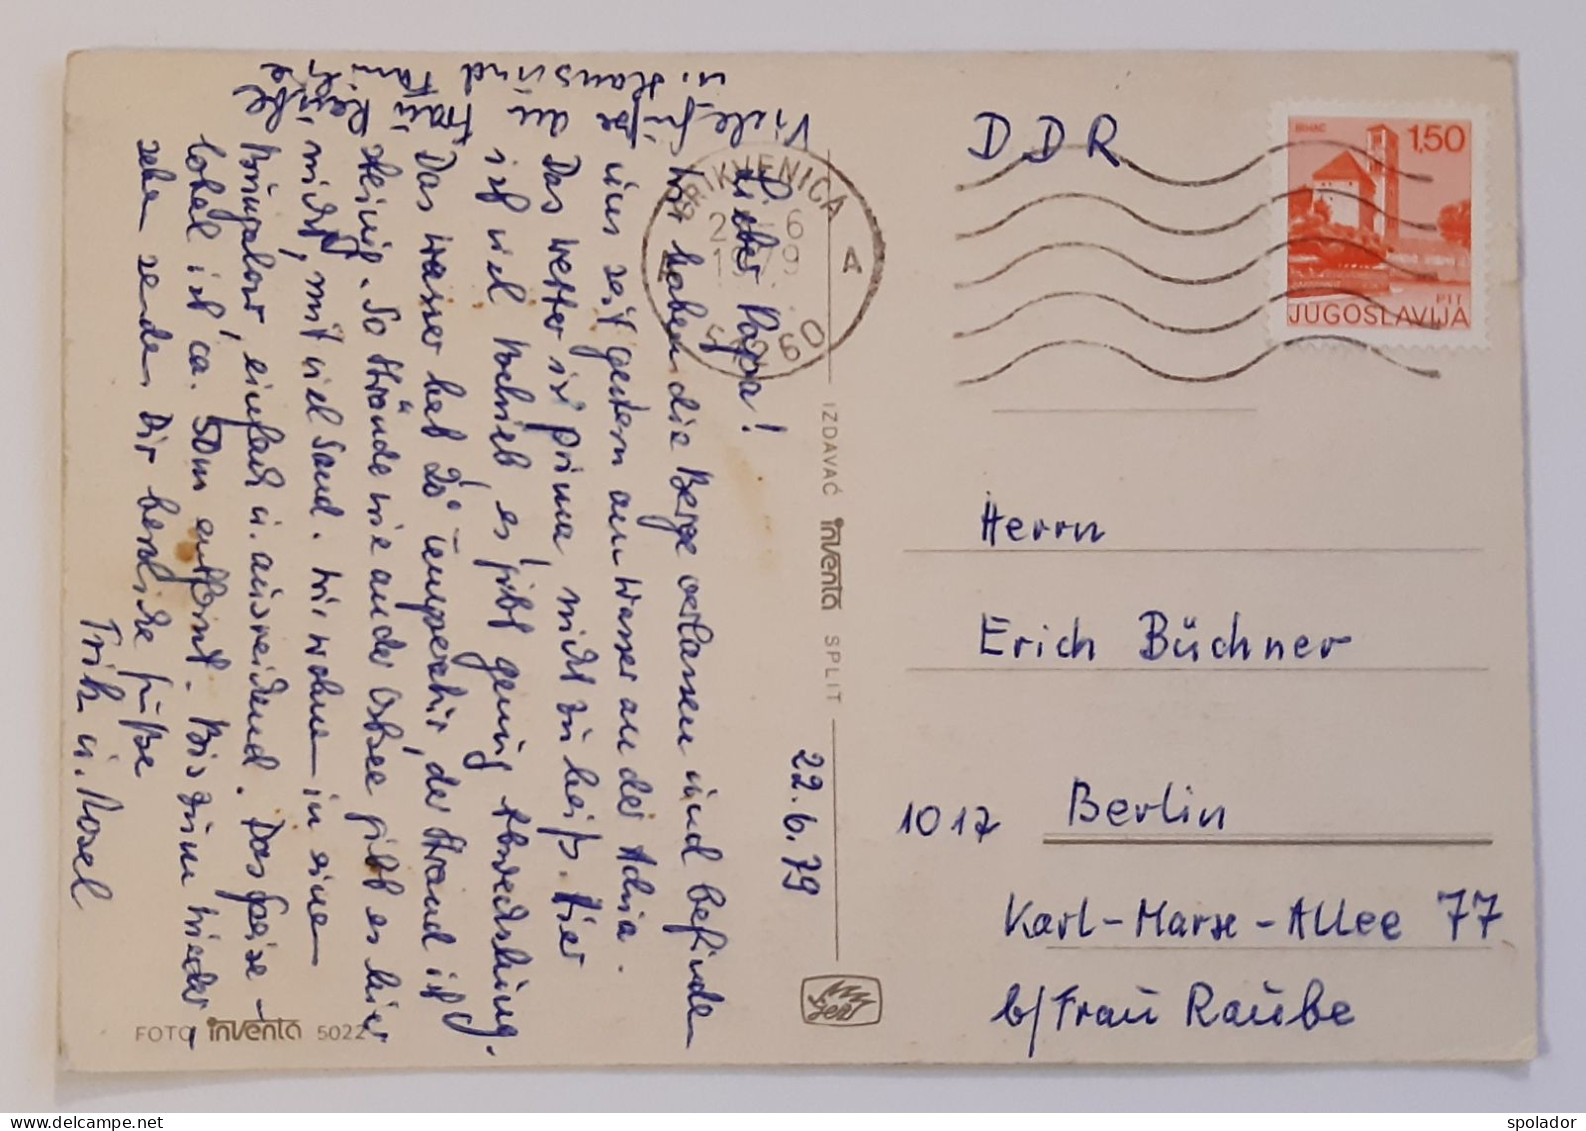 DDR
BIHAĆ
1,50
PTT
JUGOSLAVIJA
CRIKVENICA
6
1979
A
51260
Herrn
Erich Büchner
1017 Berlin
Karl-Marx-Allee 77
b/Frau Raube
22.6.79
Lieber Papa!
Wir haben die Berge verlassen und befinden
uns seit gestern am Wasser an der Adria.
Das Wetter ist prima, nicht zu heiß. Hier
ist viel Betrieb, es gibt genug Abwechslung.
Das Wasser hat 20° Temperatur, der Strand ist
steinig. So Strände wie an der Ostsee gibt es hier
nicht, mit viel Sand. Wir wohnen in einem
Bungalow, einfach u. ausreichend. Das Speise-
lokal ist ca. 50m entfernt. Bis zum Wieder-
sehen senden Dir herzliche Grüße
Fritz u. Rosel
Viele Grüße an Frau Raube
u. Hans und Familie
IZDAVAČ inventa SPLIT
FOTO inventa 5022
spolador